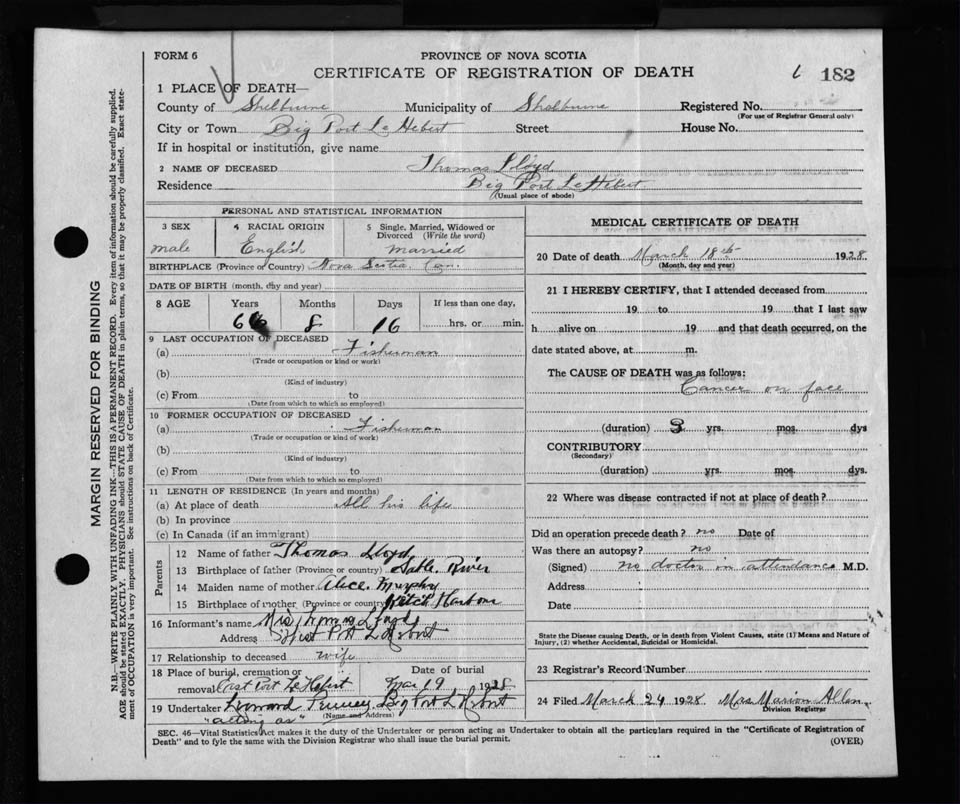 FORM 6
PROVINCE OF NOVA SCOTIA
CERTIFICATE OF REGISTRATION OF DEATH 6 182
1 PLACE OF DEATH—
County of Shelburne Municipality of Shelburne Registered No.
(For use of Registrar General only)
City or Town Big Port Le Hebert Street House No.
If in hospital or institution, give name
2 NAME OF DECEASED Thomas Lloyd
Residence Big Port Le Hebert
(Usual place of abode)
PERSONAL AND STATISTICAL INFORMATION
3 SEX 4 RACIAL ORIGIN 5 Single, Married, Widowed or Divorced (Write the word)
male English Married
BIRTHPLACE (Province or Country) Nova Scotia, Can.
DATE OF BIRTH (month, day and year)
8 AGE Years Months Days If less than one day,
66 8 16 hrs. or min.
9 LAST OCCUPATION OF DECEASED
(a) Fisherman
(Trade or occupation or kind or work)
(b)
(Kind of industry)
(c) From to
(Date from which to which so employed)
10 FORMER OCCUPATION OF DECEASED
(a) Fisherman
(Trade or occupation or kind of work)
(b)
(Kind of industry)
(c) From to
(Date from which to which so employed)
11 LENGTH OF RESIDENCE (In years and months)
(a) At place of death All his life
(b) In province
(c) In Canada (if an immigrant)
Parents
12 Name of father Thomas Lloyd
13 Birthplace of father (Province or country) Sable River
14 Maiden name of mother Alice Murphy
15 Birthplace of mother (Province or country) Ketch Harbour
16 Informant's name Mrs Lloyd
Address Port L Hebert
17 Relationship to deceased wife
18 Place of burial, cremation or removal East Port Le Hebert Date of burial Mar 19 1928
19 Undertaker Big Port L Hebert
"acting as" (Name and Address)
MEDICAL CERTIFICATE OF DEATH
20 Date of death March 18th 1928
(Month, day and year)
21 I HEREBY CERTIFY, that I attended deceased from
19 to 19 that I last saw
h alive on 19 and that death occurred, on the
date stated above, at m.
The CAUSE OF DEATH was as follows:
Cancer on face
(duration) 3 yrs. mos. dys
CONTRIBUTORY
(Secondary)
(duration) yrs. mos. dys.
22 Where was disease contracted if not at place of death?
Did an operation precede death? no Date of
Was there an autopsy? no
(Signed) no doctor in attendance M.D.
Address
Date
State the Disease causing Death, or in death from Violent Causes, state (1) Means and Nature of
Injury, (2) whether Accidental, Suicidal or Homicidal.
23 Registrar's Record Number
24 Filed March 24 1928 Mrs Marion Allen
Division Registrar
SEC. 46—Vital Statistics Act makes it the duty of the Undertaker or person acting as Undertaker to obtain all the particulars required in the "Certificate of Registration of
Death" and to fyle the same with the Division Registrar who shall issue the burial permit. (OVER)
MARGIN RESERVED FOR BINDING
N.B.—WRITE PLAINLY WITH UNFADING INK—THIS IS A PERMANENT RECORD. Every item of information should be carefully supplied.
AGE should be stated EXACTLY. PHYSICIANS should STATE CAUSE OF DEATH in plain terms, so that it may be properly classified. Exact statement of OCCUPATION is very important. See instructions on back of Certificate.